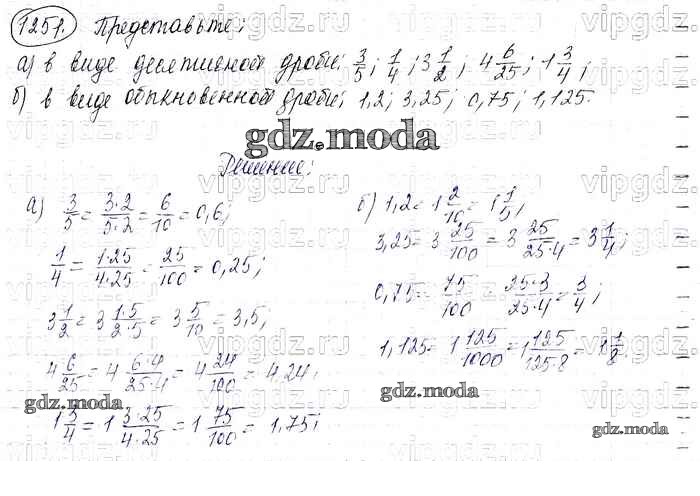 1251. Представьте:
а) в виде десятичной дроби: 3/5; 1/4; 3 1/2; 4 6/25; 1 3/4;
б) в виде обыкновенной дроби; 1,2; 3,25; 0,75; 1,125.
gdz.moda
Решение:
а) 3/5 = 3·2/5·2 = 6/10 = 0,6;
1/4 = 1·25/4·25 = 25/100 = 0,25;
3 1/2 = 3 1·5/2·5 = 3 5/10 = 3,5;
4 6/25 = 4 6·4/25·4 = 4 24/100 = 4,24;
gdz.moda
1 3/4 = 1 3·25/4·25 = 1 75/100 = 1,75;
б) 1,2 = 1 2/10 = 1 1/5;
3,25 = 3 25/100 = 3 25/25·4 = 3 1/4;
0,75 = 75/100 = 25·3/25·4 = 3/4;
1,125 = 1 125/1000 = 1 125/125·8 = 1 1/8.
gdz.moda
vipgdz.ru